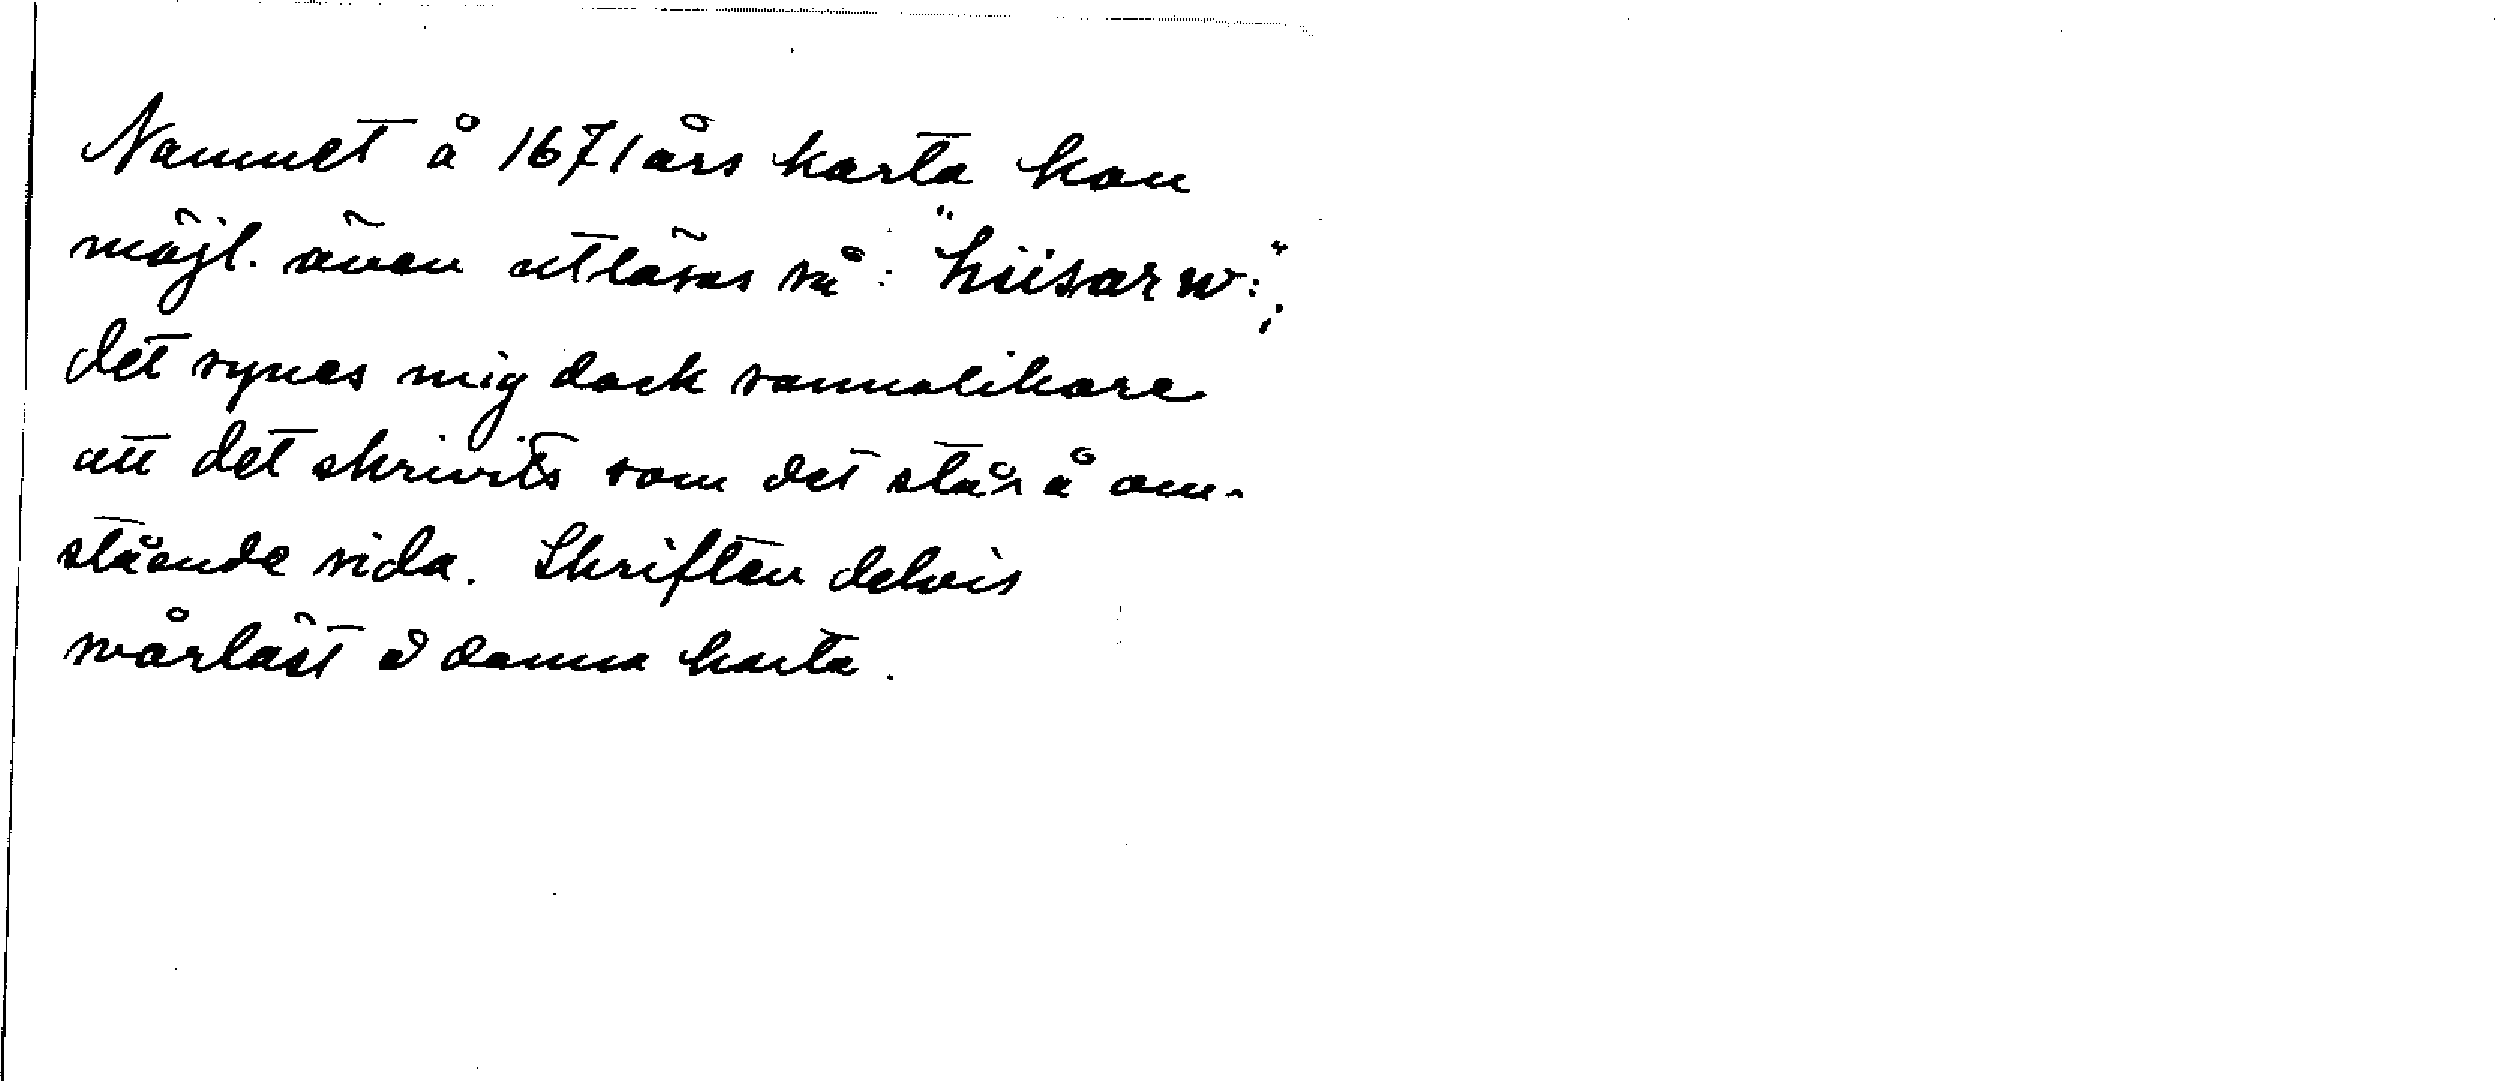 Namnet å 1671 års karta kan
möjl. även utläsas så: "hüsar w:";
det synes mig dock sannolikare
att det skrivits som det står å om-
stående sida. Skriften delvis
svårläst å denna karta.